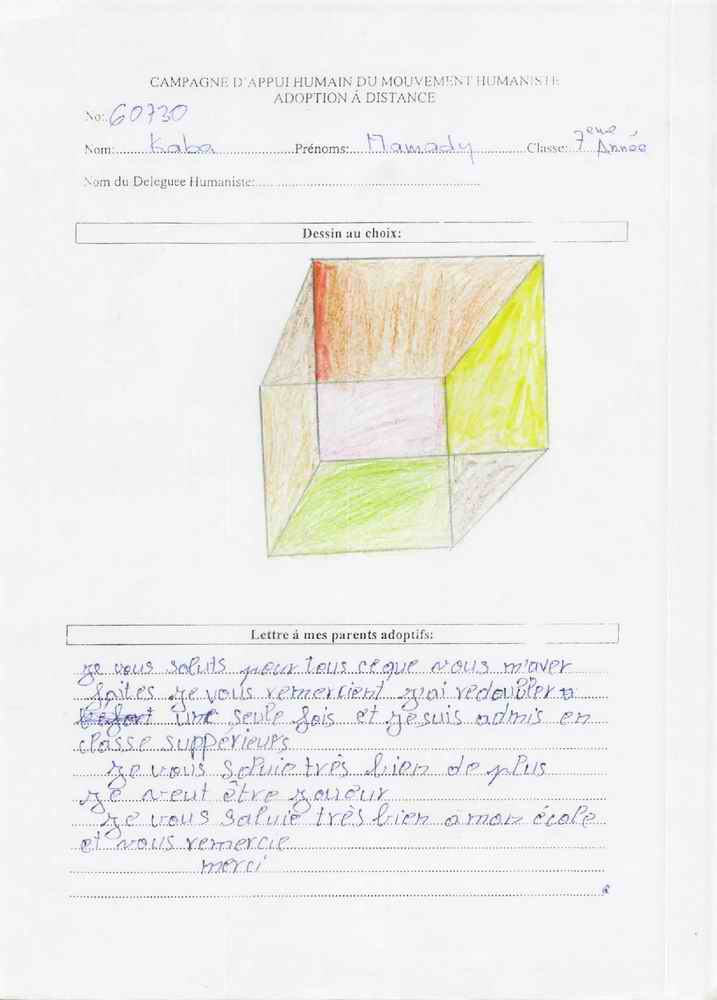 CAMPAGNE D'APPUI HUMAIN DU MOUVEMENT HUMANISTE
ADOPTION À DISTANCE
No: 60730
Nom: Kaba Prénoms: Mamady Classe: 7eme Année
Nom du Deleguee Humaniste:
Dessin au choix:
Lettre à mes parents adoptifs:
Je vous saluts pour tous ceque vous m'aver
faites Je vous remercient J'ai redoubler a
une seule fois et Je suis admis en
classe suppérieurs
Je vous saluie très bien de plus
Je veut être Joueur
Je vous saluie très bien a mon école
et vous remercie
merci